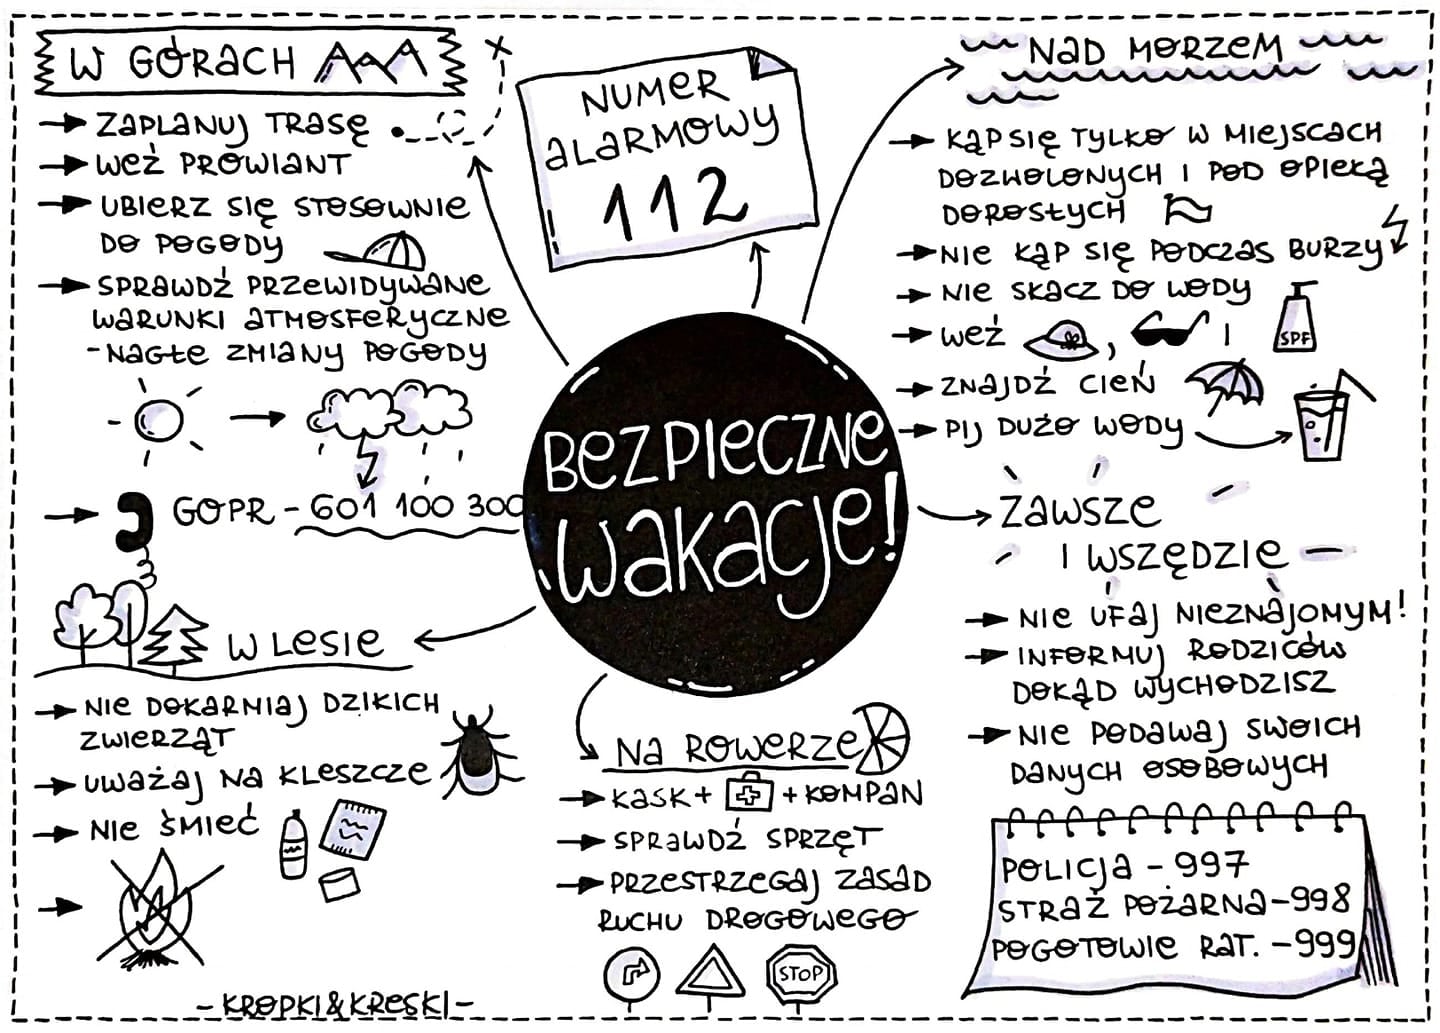 W GÓRACH
→ ZAPLANUJ TRASĘ
→ WEŹ PROWIANT
→ UBIERZ SIĘ STOSOWNIE
DO POGODY
→ SPRAWDŹ PRZEWIDYWANE
WARUNKI ATMOSFERYCZNE
- NAGŁE ZMIANY POGODY
→ GOPR - 601 100 300
NUMER
ALARMOWY
112
NAD MORZEM
→ KĄP SIĘ TYLKO W MIEJSCACH
DOZWOLONYCH I POD OPIEKĄ
DOROSŁYCH
→ NIE KĄP SIĘ PODCZAS BURZY
→ NIE SKACZ DO WODY
→ WEŹ , I
SPF
→ ZNAJDŹ CIEŃ
→ PIJ DUŻO WODY
BEZPIECZNE
WAKACJE!
W LESIE
→ NIE DOKARMIAJ DZIKICH
ZWIERZĄT
→ UWAŻAJ NA KLESZCZE
→ NIE ŚMIEĆ
NA ROWERZE
→ KASK + + KOMPAN
→ SPRAWDŹ SPRZĘT
→ PRZESTRZEGAJ ZASAD
RUCHU DROGOWEGO
STOP
ZAWSZE
I WSZĘDZIE
→ NIE UFAJ NIEZNAJOMYM!
→ INFORMUJ RODZICÓW
DOKĄD WYCHODZISZ
→ NIE PODAWAJ SWOICH
DANYCH OSOBOWYCH
POLICJA - 997
STRAŻ POŻARNA - 998
POGOTOWIE RAT. - 999
- KROPKI&KRESKI -